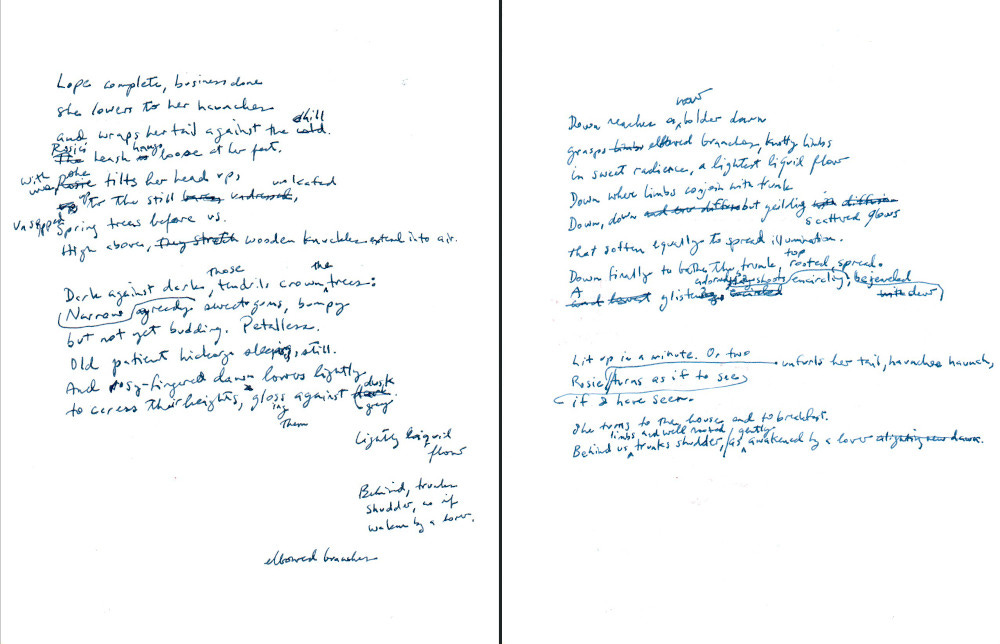 Lope complete, business done
she lowers to her haunches
and wraps her tail against the cold. chill
The Rosie's leash is hangs loose at her feet.
with nose Rosie she tilts her head up,
up to the still barren undressed, unleafed,
unstepped Spring trees before us.
High above, they stretch wooden knuckles extend into air.
Dark against dark, those tendrils crown the trees:
Narrow greedy sweetgums, bumpy
but not yet budding. Petalless.
Old patient hickory sleeping, still.
And rosy-fingered dawn lowers lightly
to caress their heights, glossing them against dusk grey.
Lightly liquid
flow
Behind, trunks
shudder, as if
waken by a lover.
elbowed branches
Down reaches now bolder dawn
grasps limbs elbowed branches, knotty limbs
in sweet radience, a lightest liquid flow
Down where limbs conjoin with trunk
Down, down but gilding with diffusion
scattered glows
that soften equally to spread illumination.
Down finally to bathe the trunk, top rooted, spread.
A glistening encircling, bejeweled
with dew,
Lit up in a minute. Or two
unfurls her tail, haunches haunch,
Rosie turns as if to see
if I have seen.
She turns to the house and to breakfast.
Behind us limbs and well rooted trunks shudder, as gently awakened by a lover alighting new dawn.